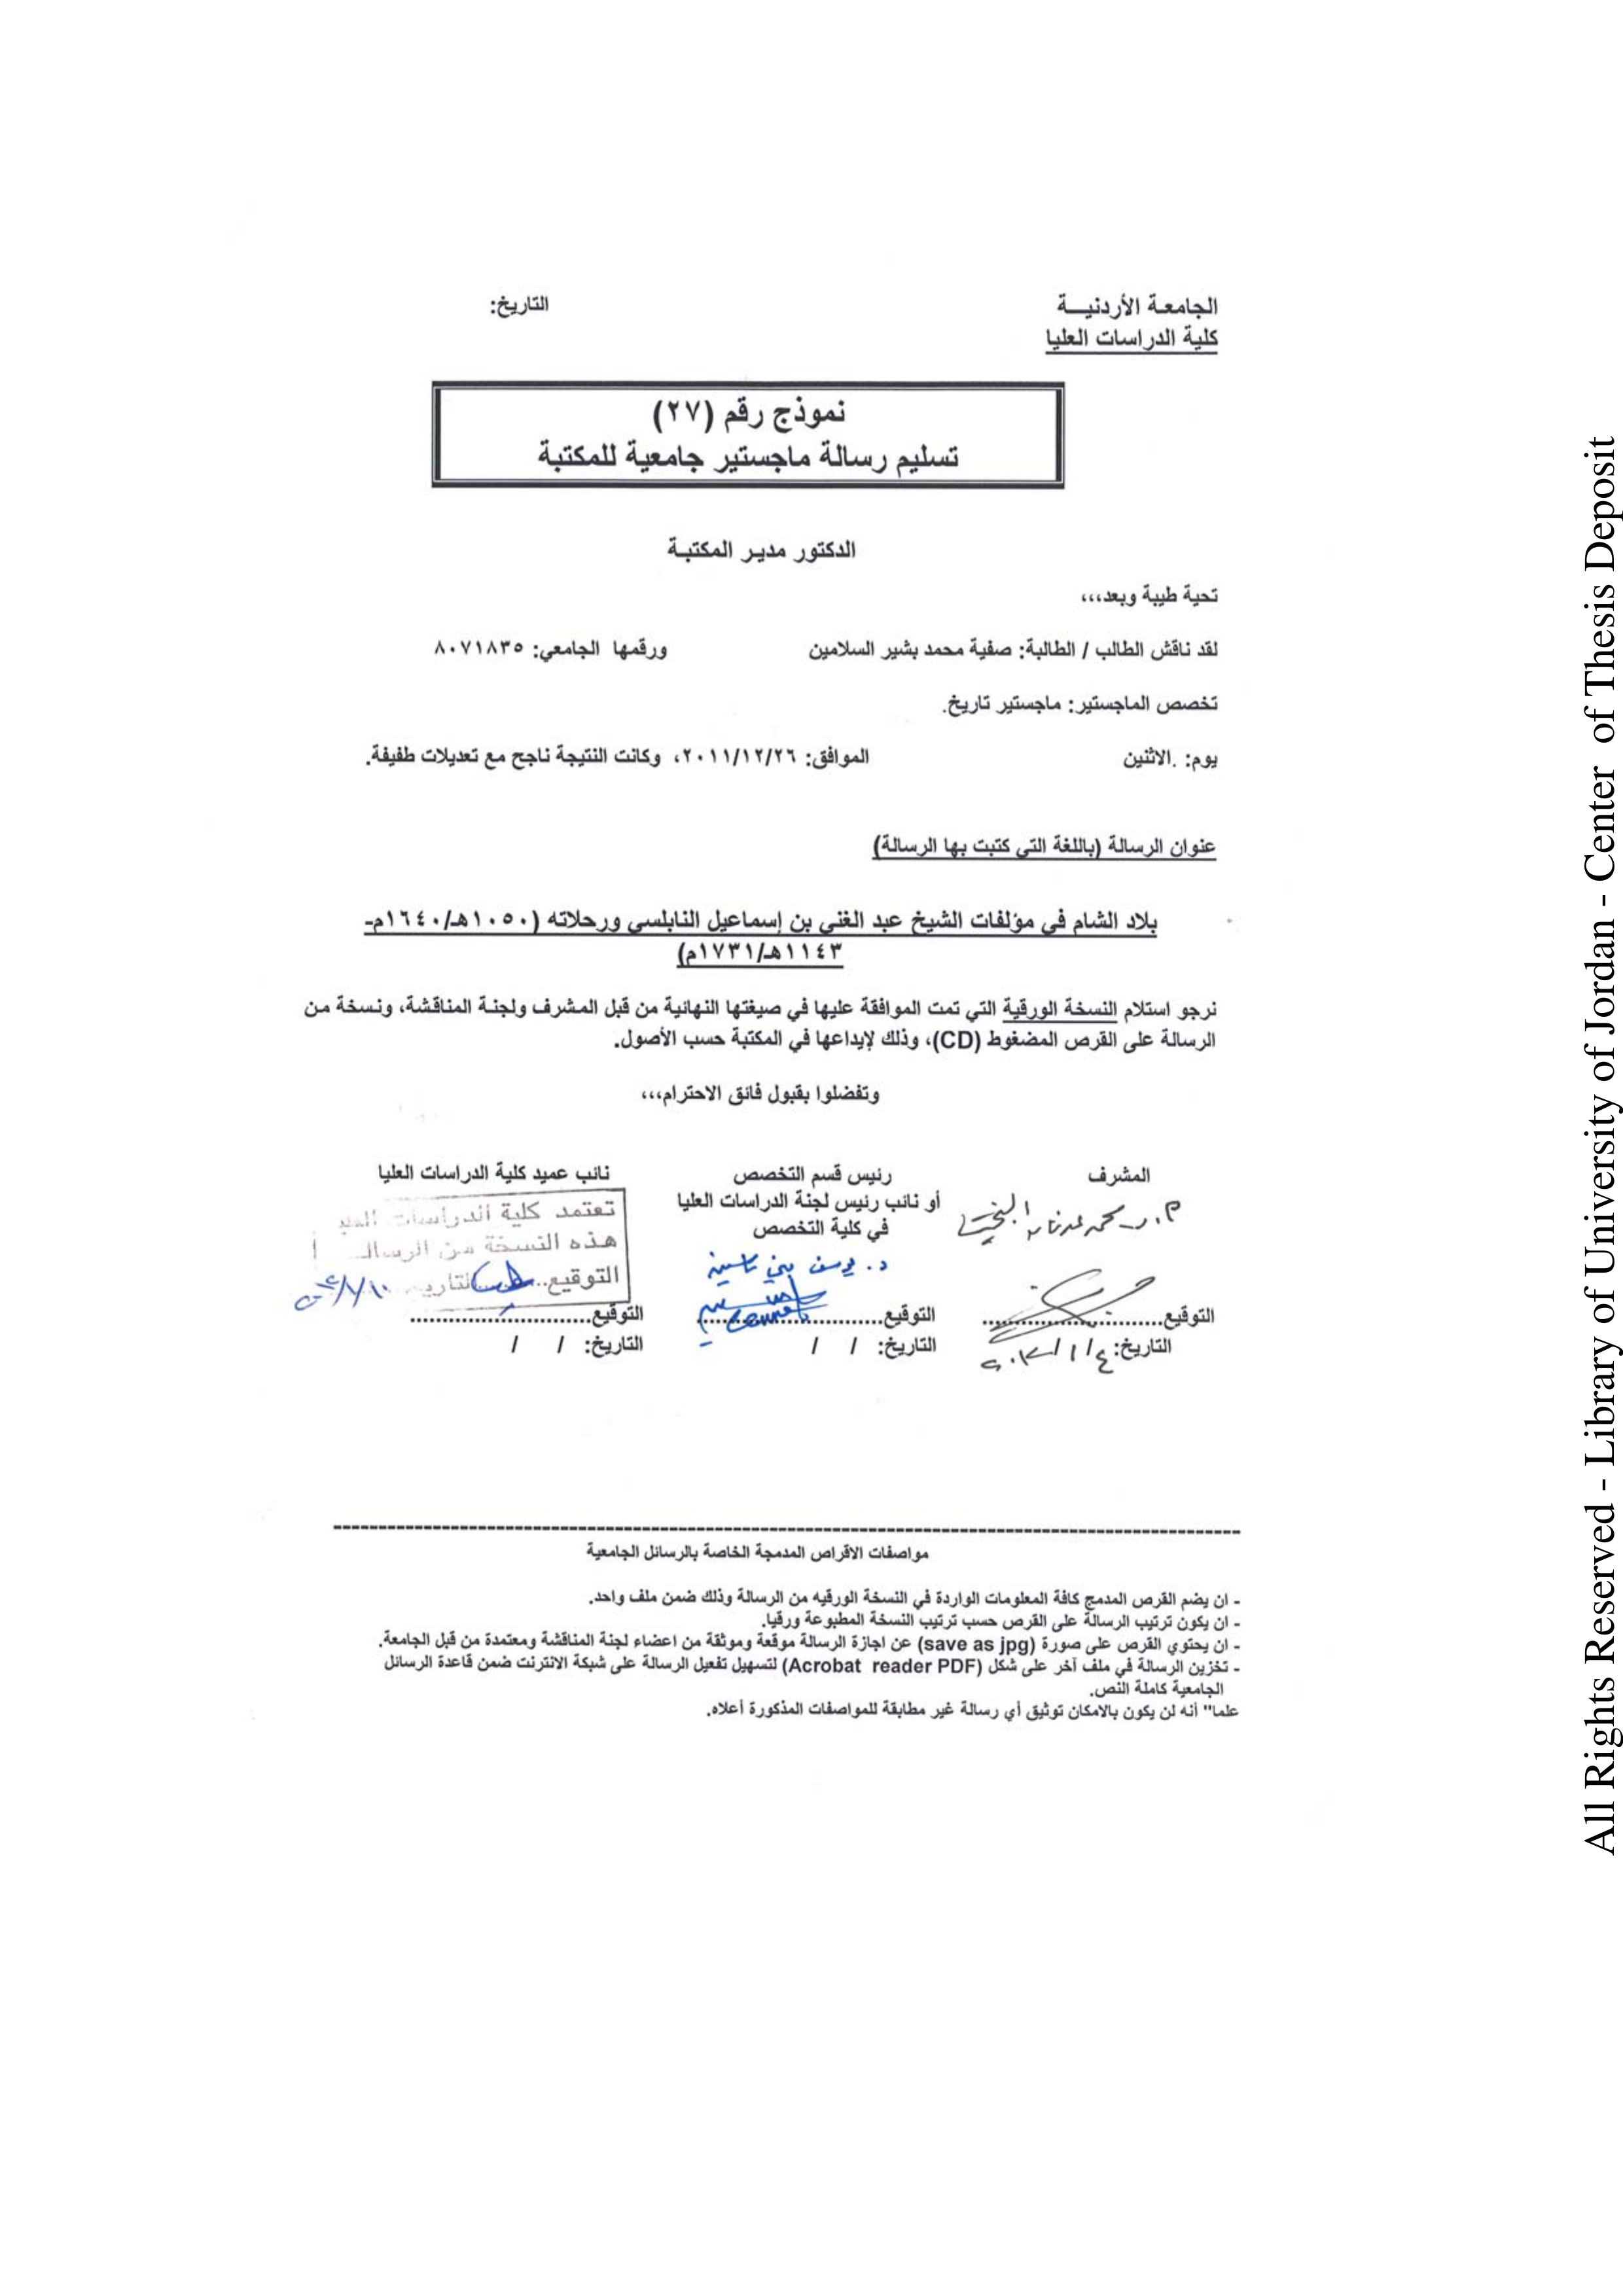 الجامعة الأردنيـــة
التاريخ:
كلية الدراسات العليا
نموذج رقم (٢٧)
تسليم رسالة ماجستير جامعية للمكتبة
الدكتور مدير المكتبـة
تحية طيبة وبعد،،،
لقد ناقش الطالب / الطالبة: صفية محمد بشير السلامين ورقمها الجامعي: ٨٠٧١٨٣٥
تخصص الماجستير: ماجستير تاريخ.
يوم: .الاثنين الموافق: ٢٠١١/١٢/٢٦، وكانت النتيجة ناجح مع تعديلات طفيفة.
عنوان الرسالة (باللغة التي كتبت بها الرسالة)
بلاد الشام في مؤلفات الشيخ عبد الغني بن إسماعيل النابلسي ورحلاته (١٠٥٠هـ/١٦٤٠م-
١١٤٣هـ/١٧٣١م)
نرجو استلام النسخة الورقية التي تمت الموافقة عليها في صيغتها النهائية من قبل المشرف ولجنة المناقشة، ونسخة من
الرسالة على القرص المضغوط (CD)، وذلك لإيداعها في المكتبة حسب الأصول.
وتفضلوا بقبول فائق الاحترام،،،
المشرف
أ.د. محمد عدنان البخيت
التوقيع
التاريخ: ٤/١/٢٠١٢
رئيس قسم التخصص
أو نائب رئيس لجنة الدراسات العليا
في كلية التخصص
د. يوسف بني ياسين
التوقيع
التاريخ: / /
نائب عميد كلية الدراسات العليا
تعتمد كلية الدراسات العليا
هذه النسخة من الرسالة
التوقيع التاريخ
التوقيع
التاريخ: / /
مواصفات الاقراص المدمجة الخاصة بالرسائل الجامعية
- ان يضم القرص المدمج كافة المعلومات الواردة في النسخة الورقيه من الرسالة وذلك ضمن ملف واحد.
- ان يكون ترتيب الرسالة على القرص حسب ترتيب النسخة المطبوعة ورقيا.
- ان يحتوي القرص على صورة (save as jpg) عن اجازة الرسالة موقعة وموثقة من اعضاء لجنة المناقشة ومعتمدة من قبل الجامعة.
- تخزين الرسالة في ملف آخر على شكل (Acrobat reader PDF) لتسهيل تفعيل الرسالة على شبكة الانترنت ضمن قاعدة الرسائل
الجامعية كاملة النص.
علما" أنه لن يكون بالامكان توثيق أي رسالة غير مطابقة للمواصفات المذكورة أعلاه.
All Rights Reserved - Library of University of Jordan - Center of Thesis Deposit